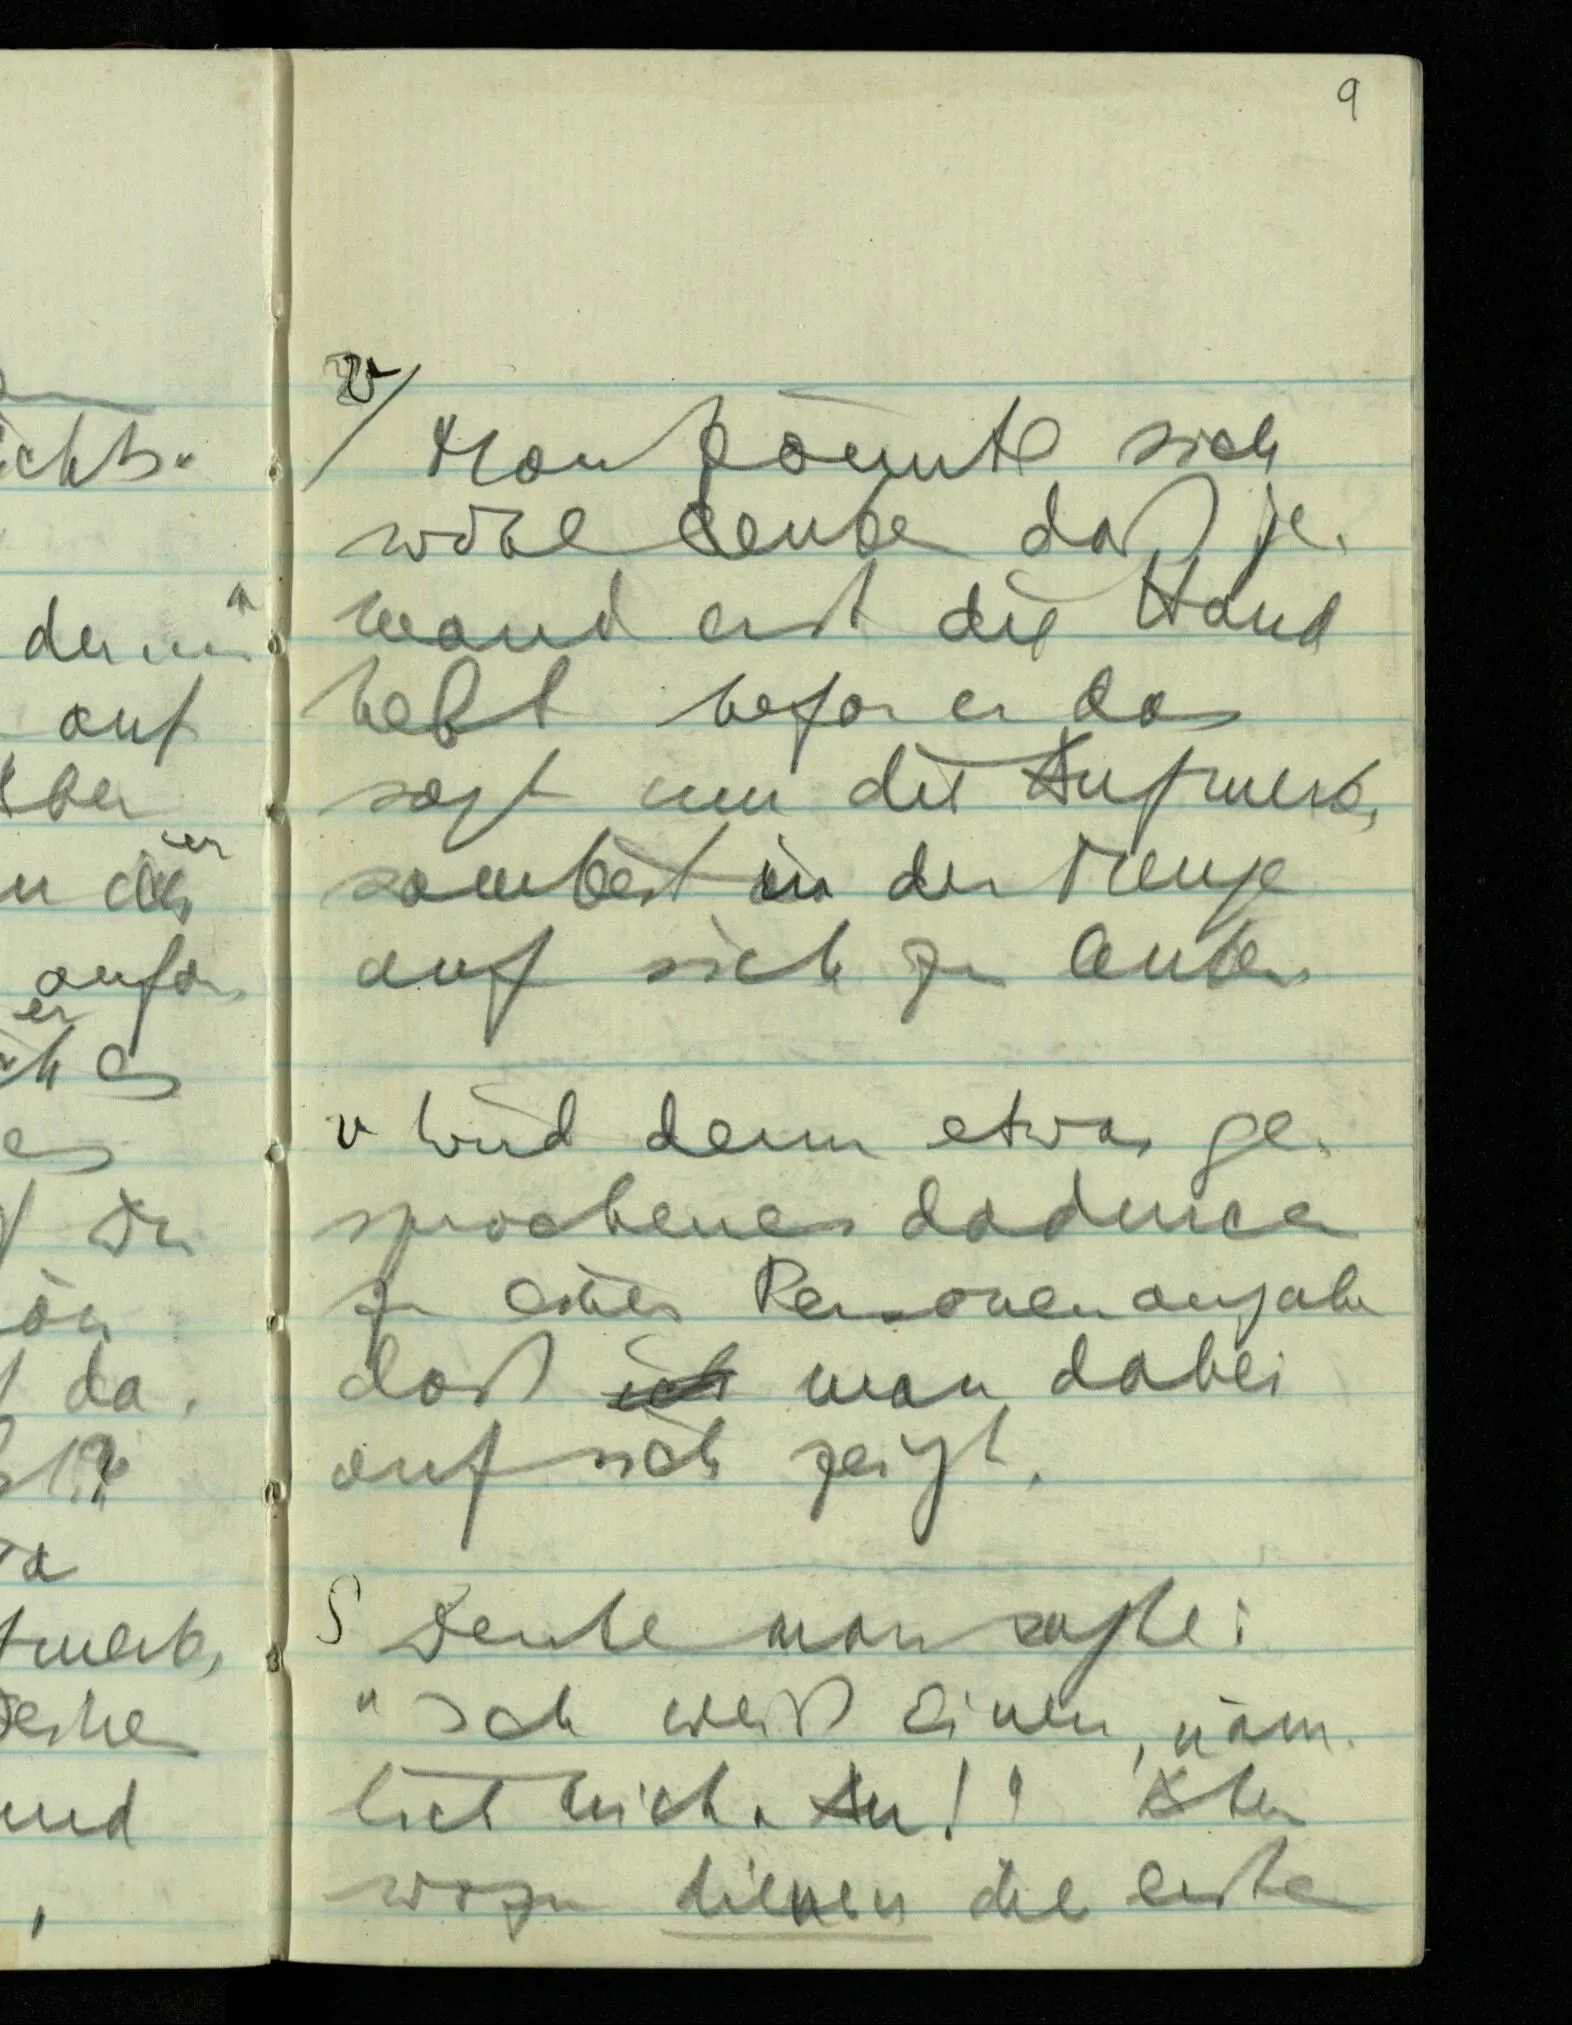 ichts."
der mir
auf
Aber
er
anfan
er
es
es
Du
da.
und
9
v/ Man könnte sich
wohl denken daß je-
mand erst die Hand
hebt befor er das
sagt um die Aufmerk-
samkeit in der Menge
auf sich zu lenken
v Wird denn etwas ge-
sprochenes dadurch
zu einer Personenangabe
daß ich man dabei
auf sich zeigt.
S Denke man sagte:
"Ich weiß Einen, näm-
lich mich. Au!" Aber
wozu dienen die erste